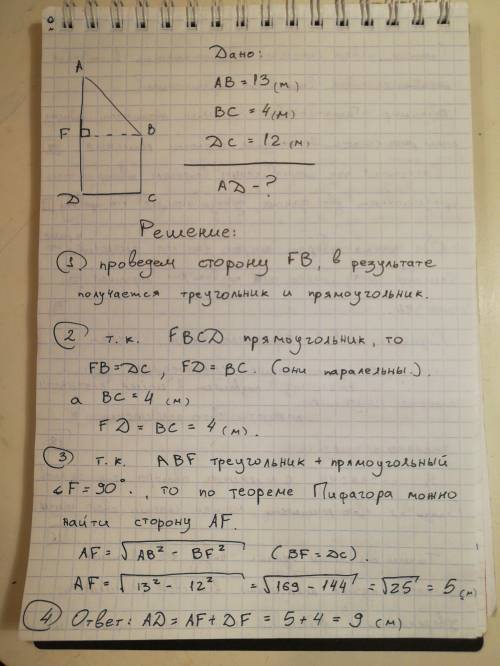 Дано:
A
AB = 13 (м)
BC = 4 (м)
F
B
DC = 12 (м)
D
C
AD - ?
Решение:
① проведем сторону FB, в результате
получается треугольник и прямоугольник.
② т.к. FBCD прямоугольник, то
FB=DC, FD=BC. (они паралельны.).
а BC=4 (м)
FD=BC=4(м).
③ т.к. ABF треугольник + прямоугольный
∠F=90°., то по теореме Пифагора можно
найти сторону AF.
AF=√AB² - BF² (BF=DC).
AF=√13² - 12² =√169-144 =√25 = 5 (м)
④ Ответ: AD = AF + DF = 5+4 = 9 (м)